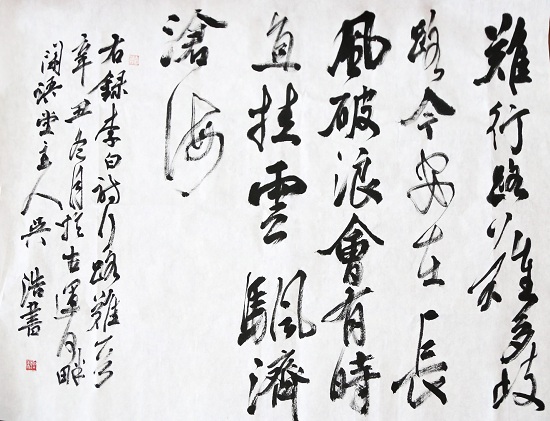 難行路難多歧
路今安在長
風破浪會有時
直挂雲颿濟
滄海
右録李白詩行路難
辛丑冬月於古運河畔
堂主人吳浩書